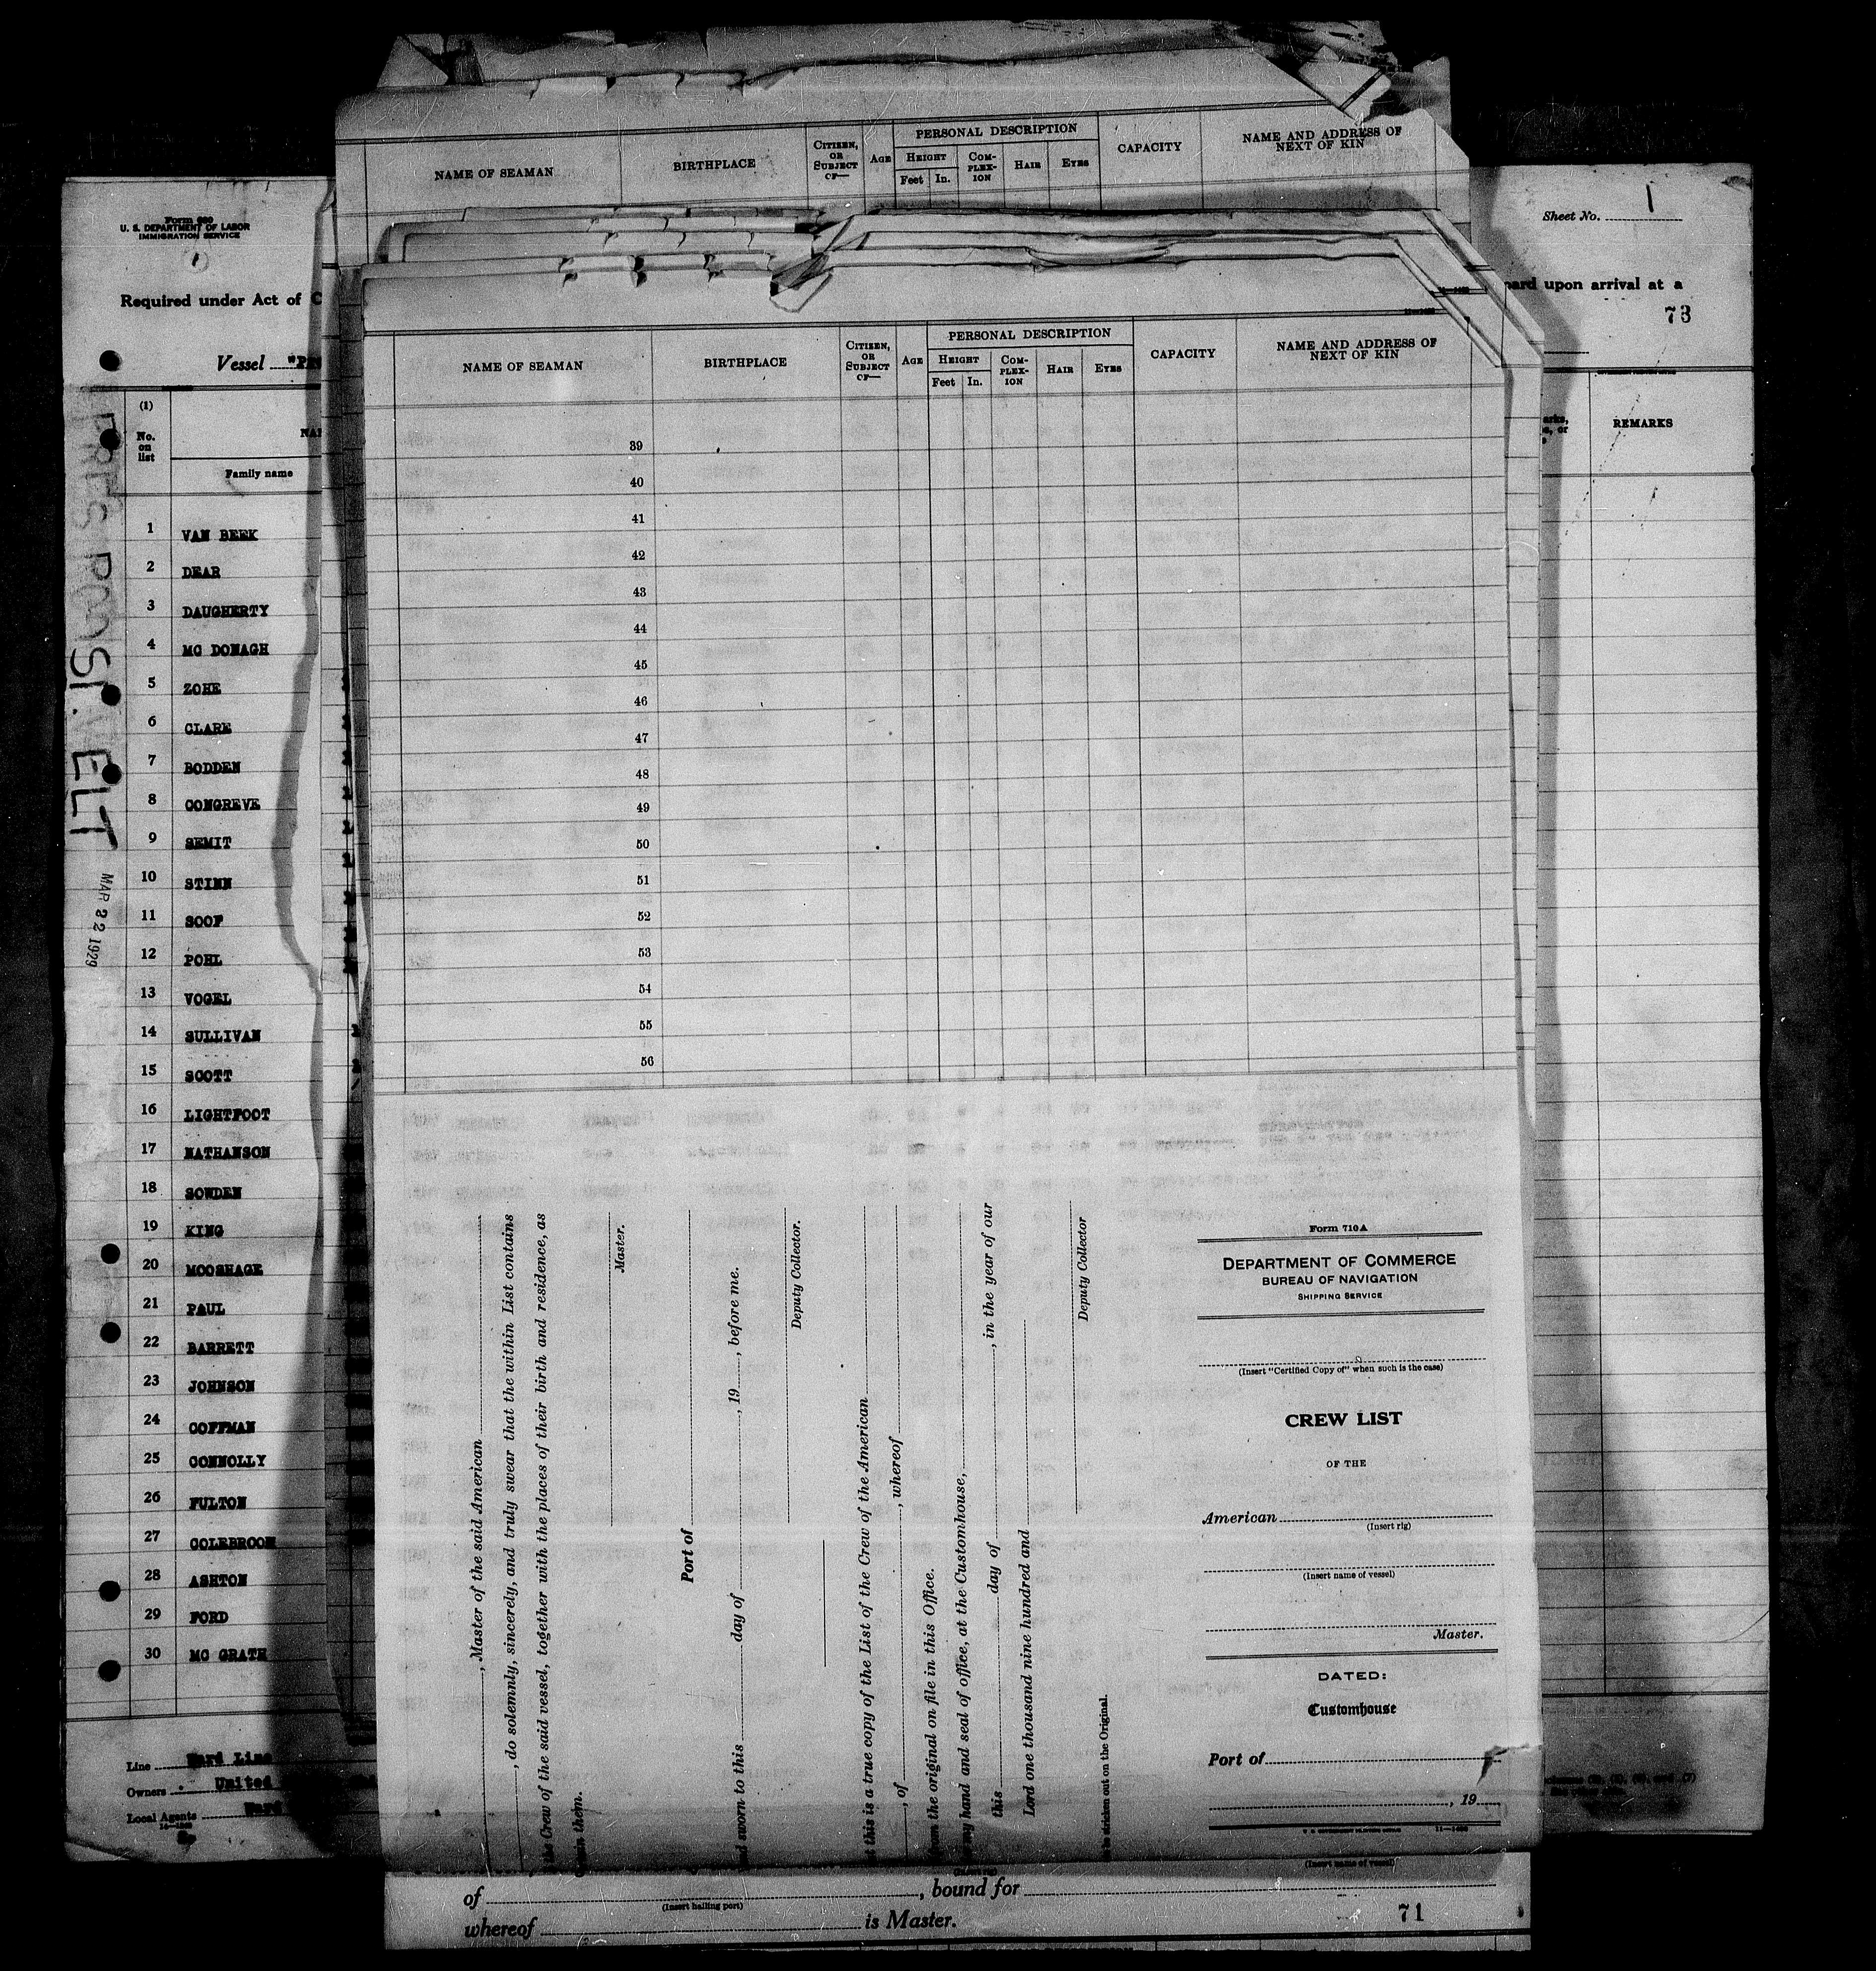 NAME OF SEAMAN
BIRTHPLACE
CITIZEN, OR SUBJECT OF—
AGE
PERSONAL DESCRIPTION
HEIGHT
Feet In.
COM-PLEX-ION
HAIR
EYES
CAPACITY
NAME AND ADDRESS OF NEXT OF KIN
U. S. DEPARTMENT OF LABOR
IMMIGRATION SERVICE
Required under Act of
Vessel
Sheet No. 1
upon arrival at a
73
REMARKS
(1)
No. on list
Family name
1 VAN BEEK
2 DEAR
3 DAUGHERTY
4 MC DONAGH
5 ZOHE
6 CLARE
7 BODDEN
8 CONGREVE
9 SEMIT
10 STINN
11 SOOF
12 POHL
13 VOGEL
14 SULLIVAN
15 SCOTT
16 LIGHTFOOT
17 NATHANSON
18 SOWDEN
19 KING
20 MOOSHAGE
21 PAUL
22 BARRETT
23 JOHNSON
24 COFFMAN
25 CONNOLLY
26 FULTON
27 COLEBROOK
28 ASHTON
29 FORD
30 MC GRATH
Line Ward Line
Owners United
Local Agents Ward
MAR 22 1929
NAME OF SEAMAN
BIRTHPLACE
CITIZEN, OR SUBJECT OF—
AGE
PERSONAL DESCRIPTION
HEIGHT
Feet In.
COM-PLEX-ION
HAIR
EYES
CAPACITY
NAME AND ADDRESS OF NEXT OF KIN
39
40
41
42
43
44
45
46
47
48
49
50
51
52
53
54
55
56
, Master of the said American
, do solemnly, sincerely, and truly swear that the within List contains
the Crew of the said vessel, together with the places of their birth and residence, as
them.
Master.
Port of
and sworn to this day of , 19 , before me.
Deputy Collector.
this is a true copy of the List of the Crew of the American
, of , whereof
the original on file in this Office.
my hand and seal of office, at the Customhouse,
this day of , in the year of our
Lord one thousand nine hundred and
Deputy Collector
be stricken out on the Original.
Form 710 A
DEPARTMENT OF COMMERCE
BUREAU OF NAVIGATION
SHIPPING SERVICE
(Insert "Certified Copy of" when such is the case)
CREW LIST
OF THE
American
(Insert rig)
(Insert name of vessel)
Master.
DATED:
Customhouse
Port of
, 19
11—1400
(Insert name of vessel)
of , bound for
(Insert hailing port)
whereof is Master.
71